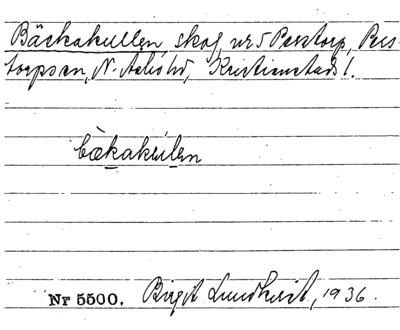 Bäckakullen, skog, nr 5 Perstorp, Pers-
torps sn, N. Åsbo hd, Kristianstads l.
bækakulen
Nr 5500. Birgit Lundkvist, 1936.